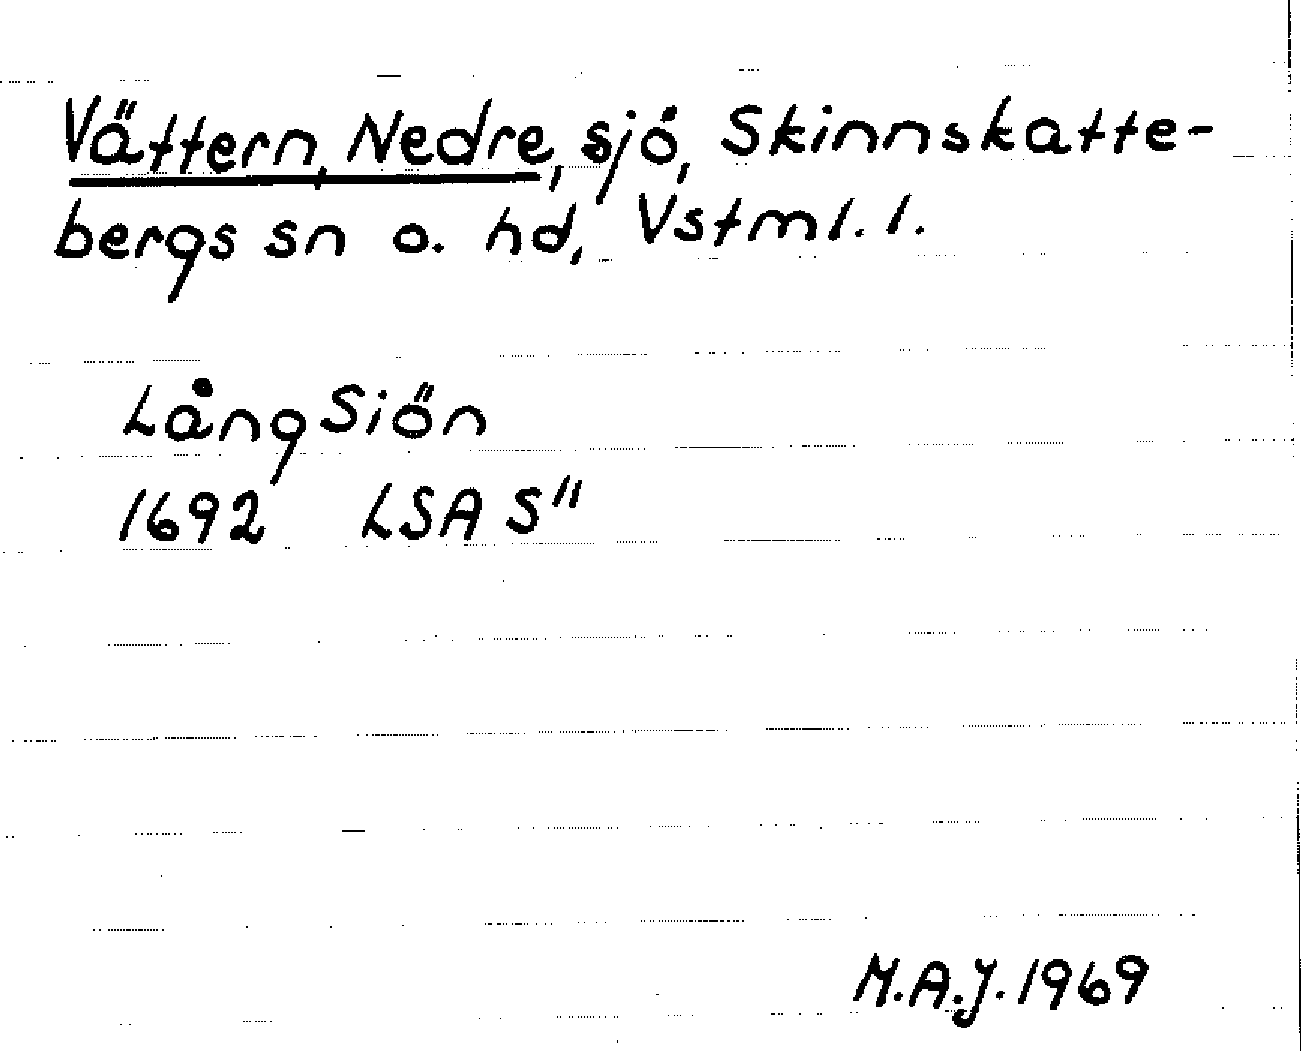 Vättern, Nedre, sjö, Skinnskatte-
bergs sn o. hd, Vstml. l.
LångSiön
1692 LSA S"
M.A.J. 1969